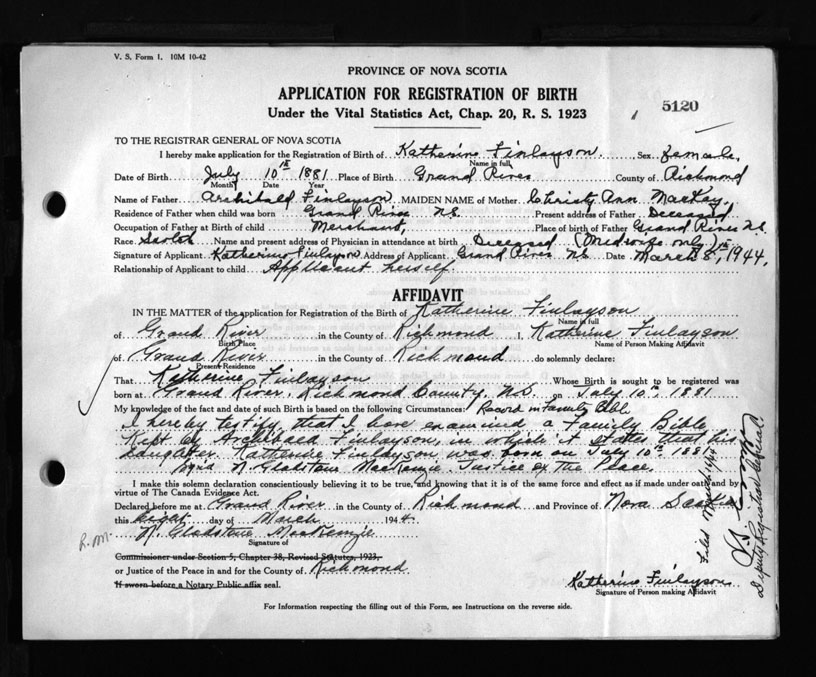 V. S. Form 1. 10M 10-42
PROVINCE OF NOVA SCOTIA
APPLICATION FOR REGISTRATION OF BIRTH
Under the Vital Statistics Act, Chap. 20, R. S. 1923
5120
TO THE REGISTRAR GENERAL OF NOVA SCOTIA
I hereby make application for the Registration of Birth of Katherine Finlayson Sex female
Name in full
Date of Birth July 10th 1881 Place of Birth Grand River County of Richmond
Month Date Year
Name of Father Archibald Finlayson MAIDEN NAME of Mother Christy Ann MacKay
Residence of Father when child was born Grand River N.S. Present address of Father Deceased
Occupation of Father at Birth of child Merchant, Place of birth of Father Grand River N.S.
Race Scotch Name and present address of Physician in attendance at birth Deceased (Midwife only)
Signature of Applicant Katherine Finlayson Address of Applicant Grand River N.S Date March 8th, 1944,
Relationship of Applicant to child Applicant herself.
AFFIDAVIT
IN THE MATTER of the application for Registration of the Birth of Katherine Finlayson
Name in full
of Grand River in the County of Richmond I, Katherine Finlayson
Birth Place Name of Person Making Affidavit
of Grand River in the County of Richmond do solemnly declare:
Present Residence
That Katherine Finlayson Whose Birth is sought to be registered was
born at Grand River, Richmond County, N.S. on July 10th, 1881
My knowledge of the fact and date of such Birth is based on the following Circumstances: Record in Family Bible
I hereby testify, that I have examined a Family Bible,
Kept by Archibald Finlayson, in which it states that his
daughter Katherine Finlayson was born on July 10th 1881
N. Gladstone MacKenzie, Justice of the Peace.
I make this solemn declaration conscientiously believing it to be true, and knowing that it is of the same force and effect as if made under oath and by
virtue of The Canada Evidence Act.
Declared before me at Grand River in the County of Richmond and Province of Nova Scotia
this eight day of March 1944.
R.M.
N. Gladstone MacKenzie
Signature of
Commissioner under Section 5, Chapter 38, Revised Statutes, 1923,
or Justice of the Peace in and for the County of Richmond
If sworn before a Notary Public affix seal.
Katherine Finlayson
Signature of Person making Affidavit
For Information respecting the filling out of this Form, see Instructions on the reverse side.
Filed March
Deputy Registrar General